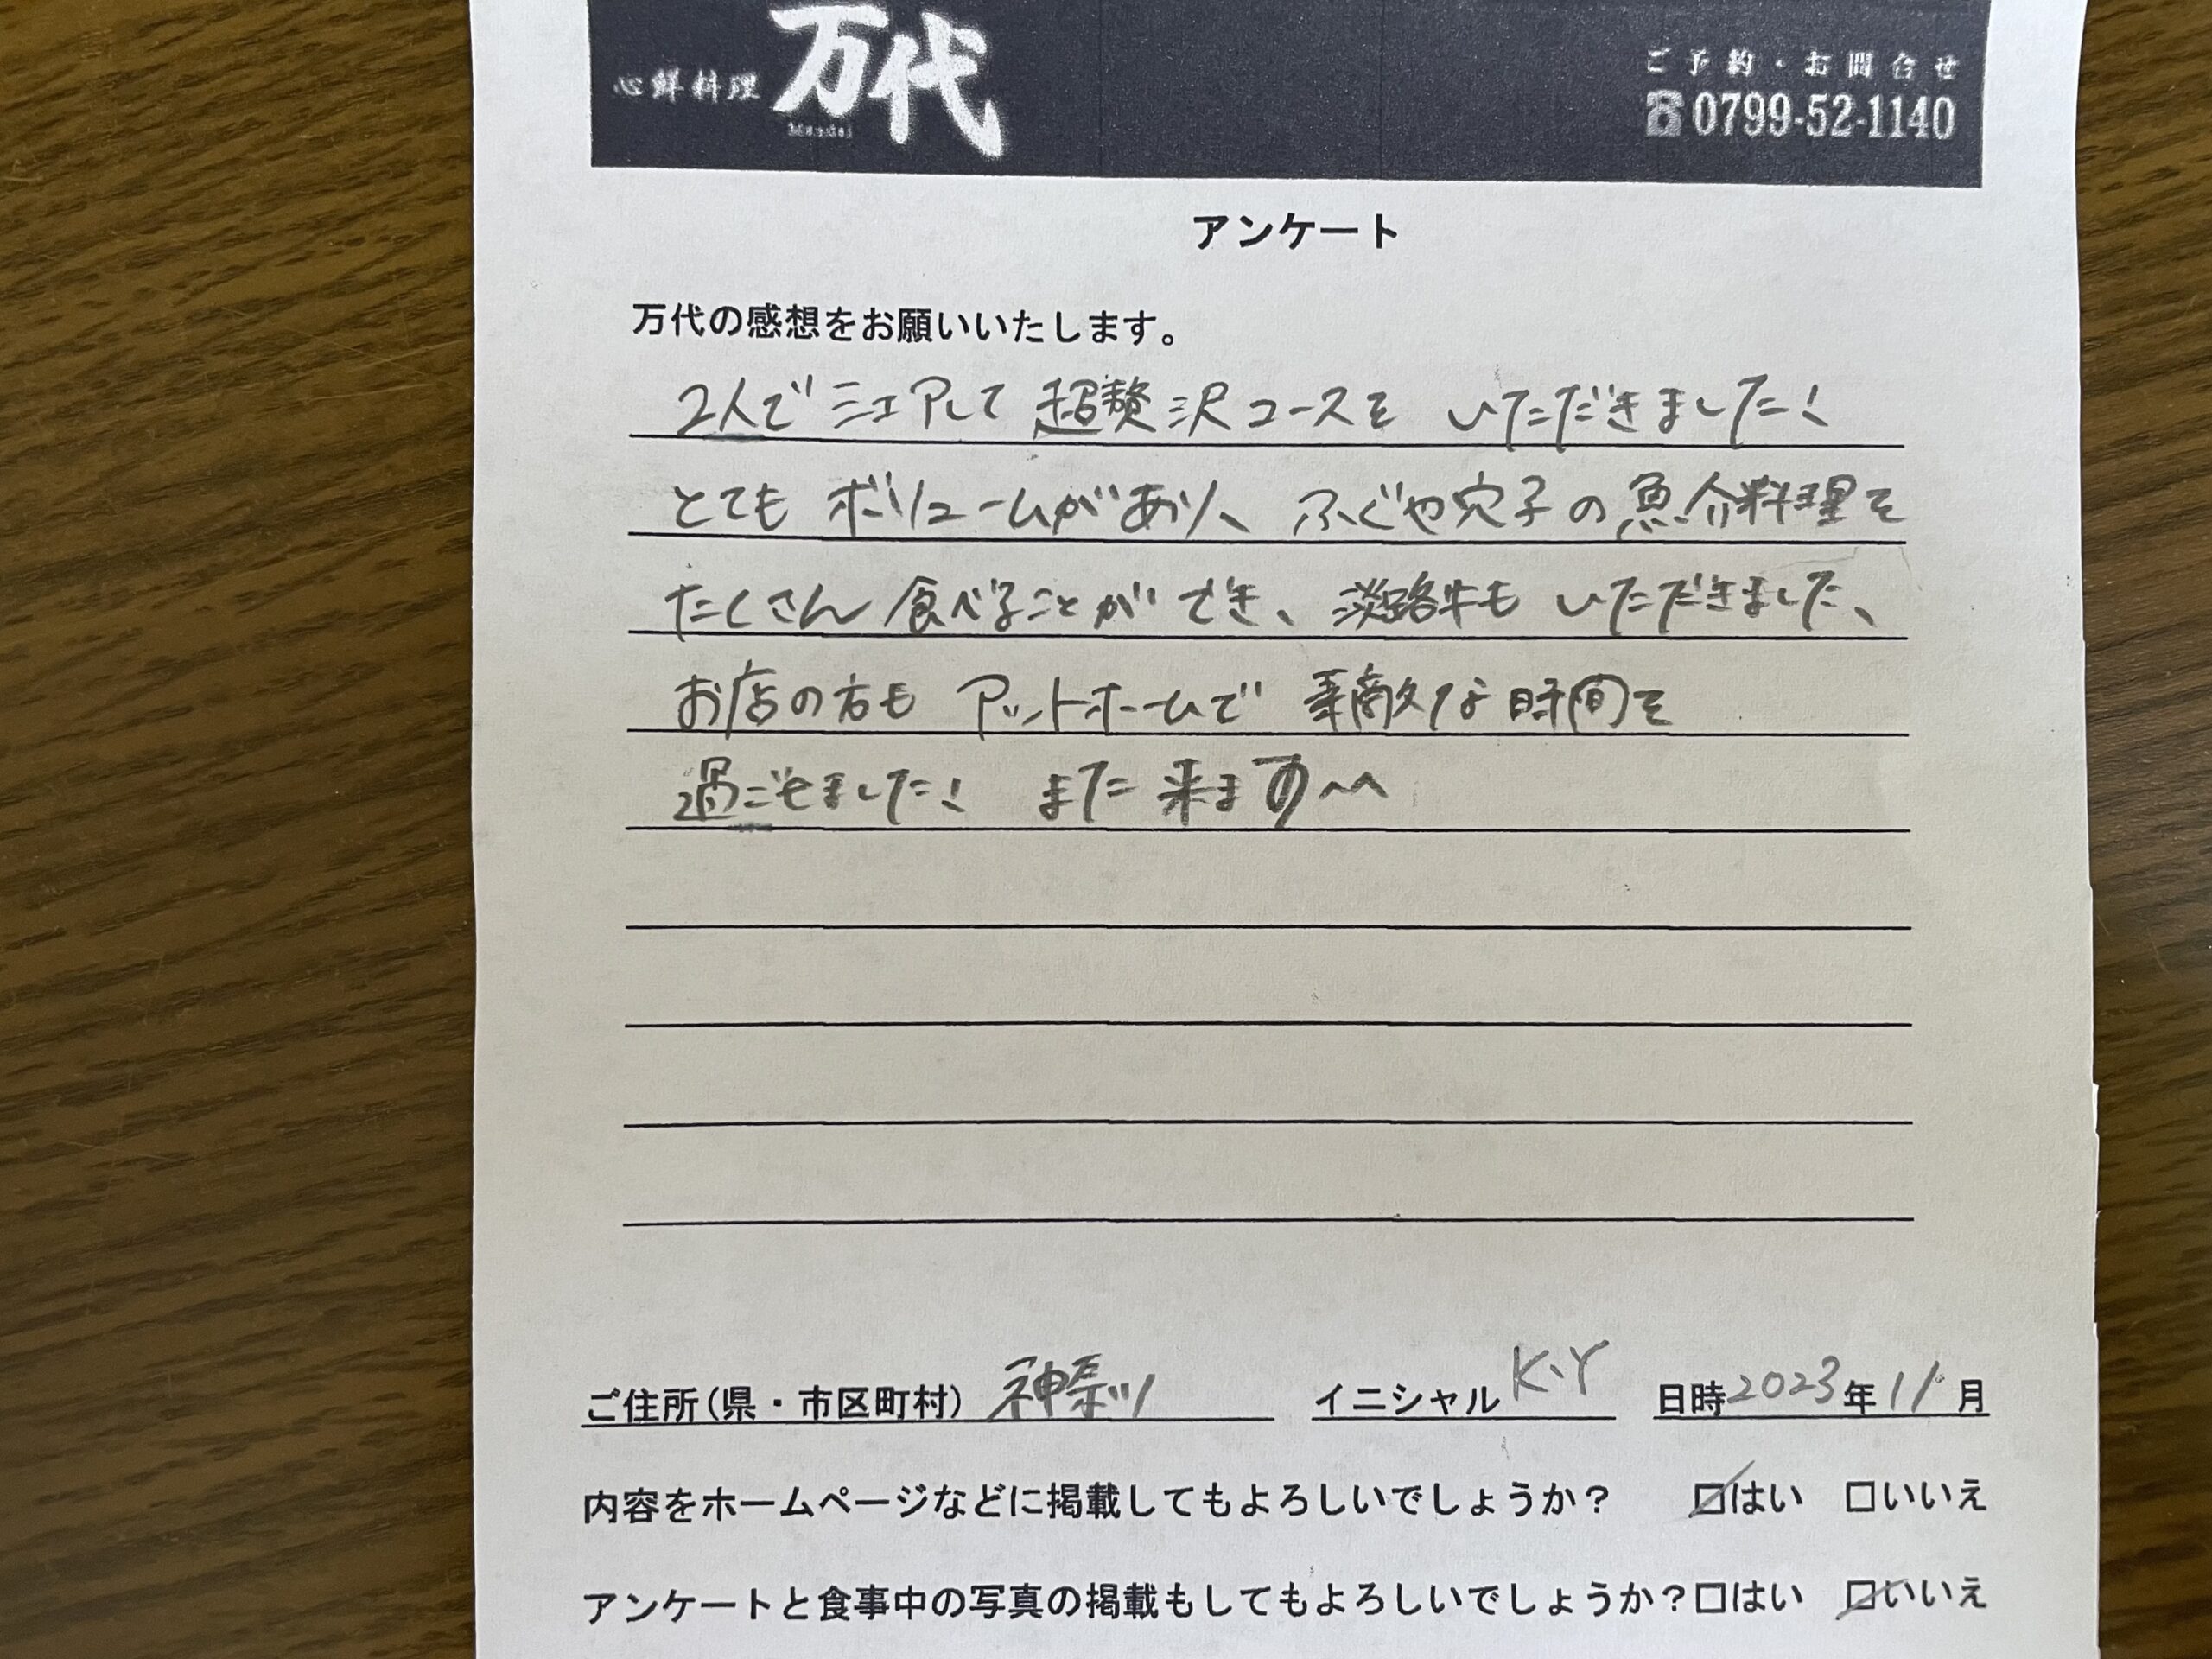 心鮮料理 万代
Mandai
ご予約・お問合せ
☎0799-52-1140
アンケート
万代の感想をお願いいたします。
2人でシェアして超贅沢コースをいただきました!
とてもボリュームがあり、ふぐや穴子の魚介料理を
たくさん食べることができ、淡路牛もいただきました、
お店の方もアットホームで素敵な時間を
過ごせました! また来ます^^
ご住所(県・市区町村) 神奈川 イニシャル K.Y 日時 2023年 11月
内容をホームページなどに掲載してもよろしいでしょうか? ☑はい □いいえ
アンケートと食事中の写真の掲載もしてもよろしいでしょうか?□はい ☑いいえ